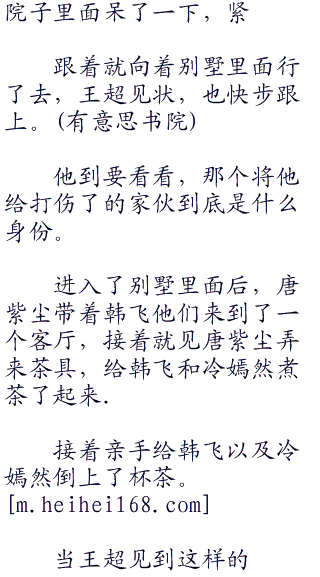 院子里面呆了一下，紧
跟着就向着别墅里面行
了去，王超见状，也快步跟
上。(有意思书院)
他到要看看，那个将他
给打伤了的家伙到底是什么
身份。
进入了别墅里面后，唐
紫尘带着韩飞他们来到了一
个客厅，接着就见唐紫尘弄
来茶具，给韩飞和冷嫣然煮
茶了起来.
接着亲手给韩飞以及冷
嫣然倒上了杯茶。
[m.heihei168.com]
当王超见到这样的